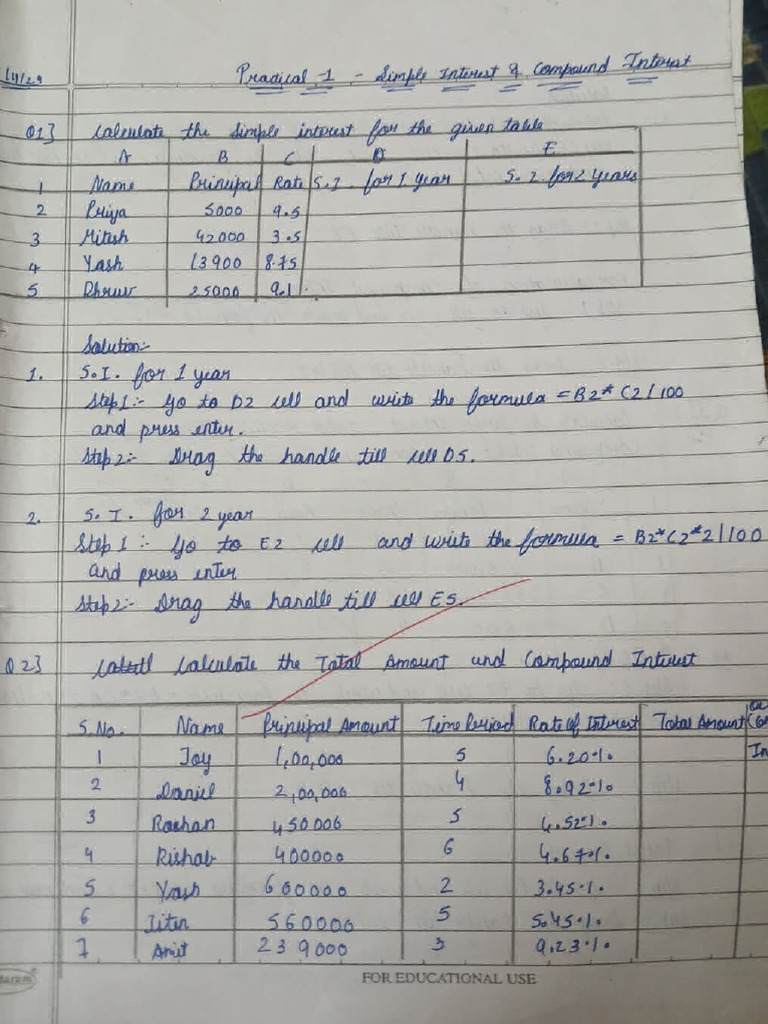 Pradical 1 - Simple Interest & Compound Interest
Q1] Calculate the Simple interest for the given table
A B C D E
1 Name Principal Rate S.I for 1 year S.I for 2 years
2 Priya 5000 9.5
3 Mitesh 42000 3.5
4 Yash 13900 8.75
5 Dhruv 25000 9.1
Solution:-
1. S.I. for 1 year
Step 1:- Go to D2 cell and write the formula = B2* C2/100
and press enter.
Step 2:- Drag the handle till cell D5.
2. S.I. for 2 year
Step 1:- Go to E2 cell and write the formula = B2*C2*2/100
and press enter
Step 2:- Drag the handle till cell E5.
Q2] Calculate the Total Amount and Compound Interest
S.No. Name Principal Amount Time Period Rate of Interest Total Amount
1 Joy 1,00,000 5 6.20%
2 Daniel 2,00,000 4 8.92%
3 Roshan 450000 5 4.52%
4 Rishab 400000 6 4.67%
5 Yash 600000 2 3.45%
6 Jitin 560000 5 5.45%
7 Amit 239000 3 9.23%
FOR EDUCATIONAL USE